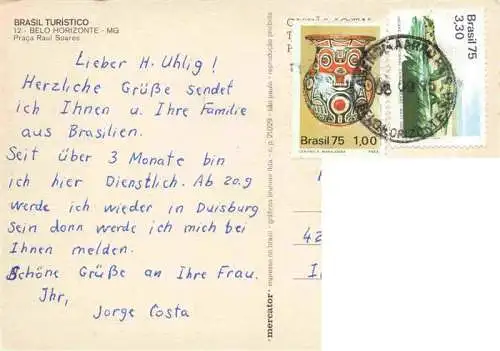 BRASIL TURÍSTICO
12 - BELO HORIZONTE - MG
Praça Raul Soares
Lieber H. Uhlig!
Herzliche Grüße sendet
ich Ihnen u. Ihre Familie
aus Brasilien.
Seit über 3 Monate bin
ich hier Dienstlich. Ab 20.9
werde ich wieder in Duisburg
sein dann werde ich mich bei
Ihnen melden.
Schöne Grüße an Ihre Frau.
Ihr,
Jorge Costa
mercator
impresso no brasil - gráficos brunner ltda - c. p. 21029 - são paulo - reprodução proibida
Brasil 75 1,00
Brasil 75
3,30
42